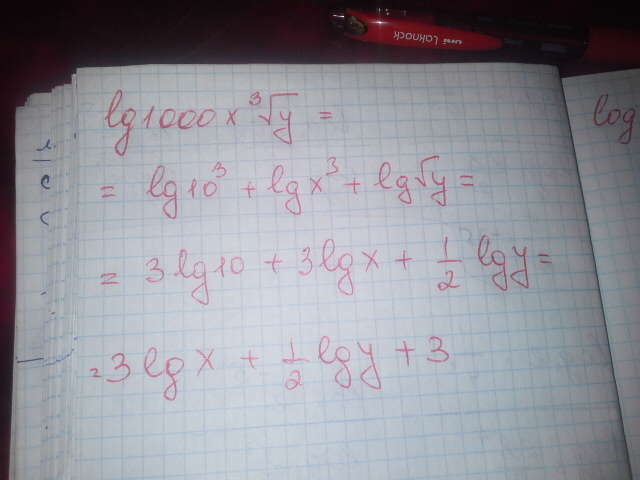 uni Laknock
lg1000x³√y =
= lg10³ + lgx³ + lg√y =
= 3lg10 + 3lgx + 1/2 lgy =
= 3lgx + 1/2 lgy + 3
log